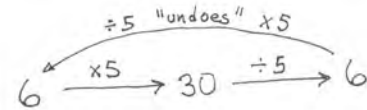 ÷5 "undoes" ×5
6 ×5 → 30 ÷5 → 6